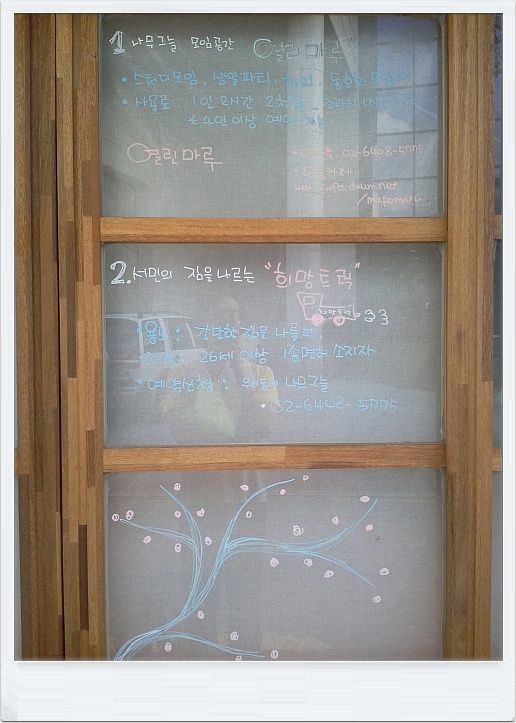 1 나무그늘 모임공간 "열린마루"
• 스터디모임, 생일파티, 회의, 동호회
• 사용료 : 1인 2시간 2천원 초과시 1시간
* 4인이상 예약가능
열린마루
• 02-6408-5775
• 카페
www.cafe.daum.net
/mapomaru
2. 서민의 짐을 나르는 "희망트럭"
희망트럭
• 용도 : 간단한 짐을 나를때
26세 이상 1종면허 소지자
• 예약신청 : 우리동네 나무그늘
• 02-6408-5775